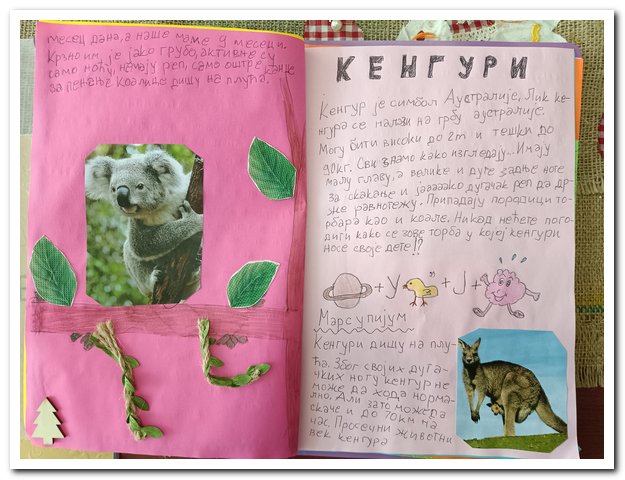 месец дана, а наше маме 9 месеци.
Крзно им је јако грубо, активне су
само ноћу, немају реп, само оштре канџе
за пењање. Коалице дишу на плућа.
КЕНГУРИ
Кенгур је симбол Аустралије. Лик ке-
нгура се налази на грбу аустралије.
Могу бити високи до 2m и тешки до
90кг. Сви знамо како изгледају... Имају
малу главу, а велике и дуге задње ноге
за скакање и јаааако дугачак реп да др-
же равнотежу. Припадају породици то-
рбара као и коале. Никад нећете пого-
дити како се зове торба у којој кенгури
носе своје дете!?
+ У " + Ј +
Марсупијум
Кенгури дишу на плу-
ћа. Због својих дуга-
чких ногу кенгур не
може да хода норма-
лно. Али зато може да
скаче и до 70км на
час. Просечни животни
век кенгура